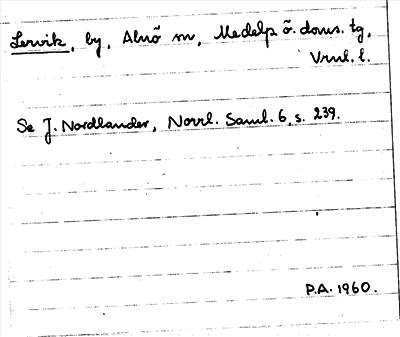 Lervik, by, Alnö sn, Medelp. ö. doms. tg,
Vrnl. l.
Se J. Nordlander, Norrl. Saml. 6, s. 239.
P.A. 1960.